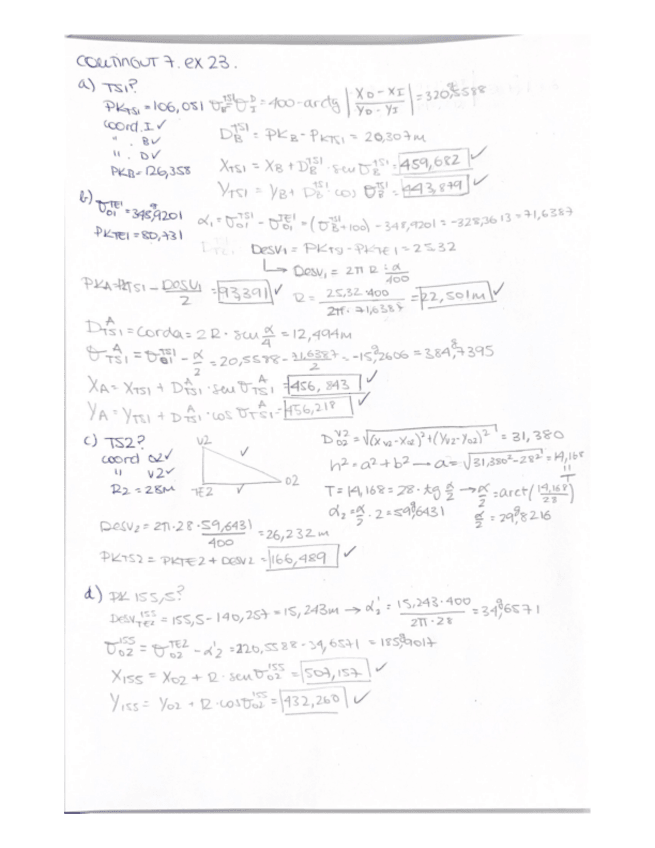 CONTINGUT 7. EX 23.
a) TS1?
PKTS1 = 106,051 θ_B^TS1 = θ_I^D = 400 - arctg |XD - XI / YD - YI| = 320,5588^g
coord. I ✓
" . B ✓
" . D ✓
PKB = 126,358
D_B^TS1 = PKB - PKTS1 = 20,307m
XTS1 = XB + D_B^TS1 · sen θ_B^TS1 = 459,682 ✓
YTS1 = YB + D_B^TS1 · cos θ_B^TS1 = 443,879 ✓
b) θ_01^TE1 = 348,9201^g
PKTE1 = 80,731
α1 = θ_01^TS1 - θ_01^TE1 = (θ_B^TS1 + 100) - 348,9201 = -328,3613 = 71,6387
Desv1 = PKTS - PKTE1 = 25.32
↳ Desv1 = 2π R · α/400
PKA = PKTS1 - DESV1/2 = 93,391 ✓ R = 25,32·400 / 2π · 71,6387 = 22,501m ✓
D_TS1^A = Corda = 2R · sen α/4 = 12,494m
θ_TS1^A = θ_01^TS1 - α/2 = 20,5588 - 71,6387/2 = -15,2606^g = 384,7395^g
XA = XTS1 + D_TS1^A · sen θ_TS1^A = 456,843 ✓
YA = YTS1 + D_TS1^A · cos θ_TS1^A = 456,218 ✓
c) TS2?
coord 02 ✓
" V2 ✓
R2 = 28m
V2
TE2 02
D_02^V2 = √(XV2 - X02)² + (YV2 - Y02)² = 31,380
h² = a² + b² → a = √31,380² - 28² = 14,168
T
T = 14,168 = 28 · tg α/2 → α/2 = arct(14,168/28)
α2 = α/2 · 2 = 59,6431^g α/2 = 29,8216^g
Desv2 = 2π · 28 · 59,6431/400 = 26,232m
PKTS2 = PKTE2 + DESV2 = 166,489 ✓
d) PK 155,5?
Desv_TE2^155 = 155,5 - 140,257 = 15,243m → α'2 = 15,243·400 / 2π · 28 = 34,6571^g
θ_02^155 = θ_02^TE2 - α'2 = 220,5588 - 34,6571 = 185,9017^g
X155 = X02 + R · sen θ_02^155 = 507,157 ✓
Y155 = Y02 + R · cos θ_02^155 = 432,260 ✓